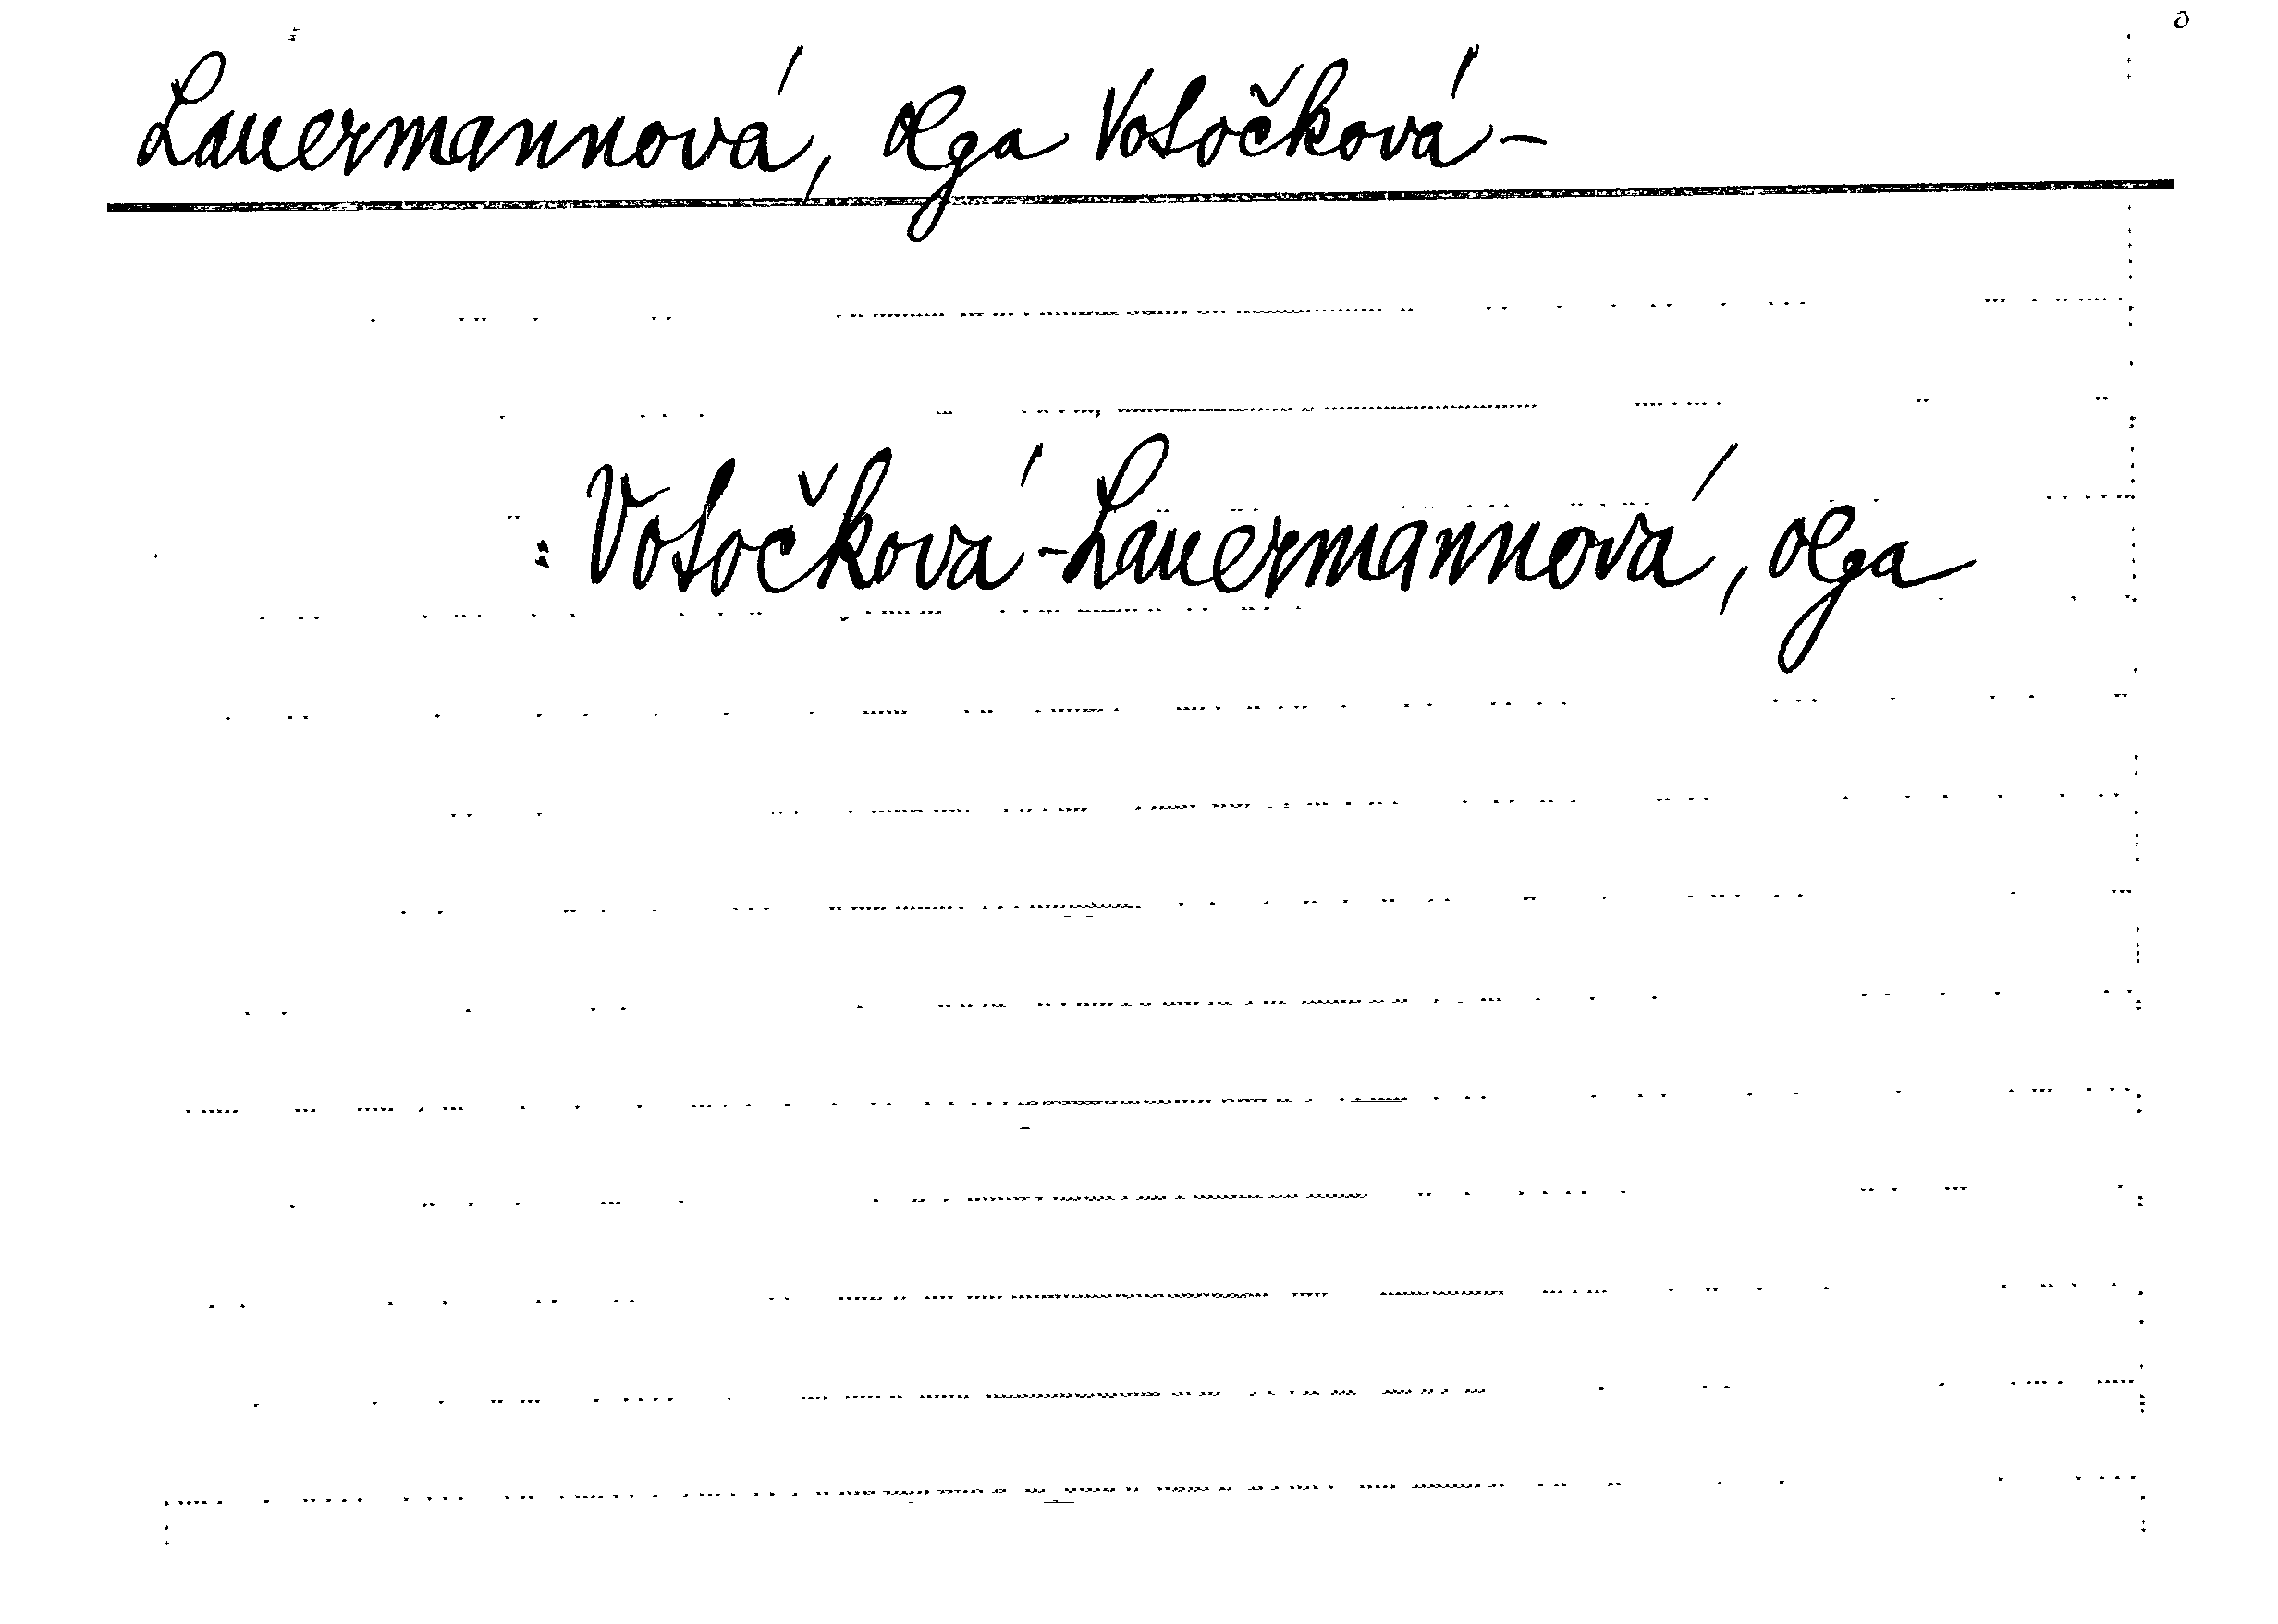 Lauermannová, Olga Vosočková-
: Vosočková-Lauermannová, Olga